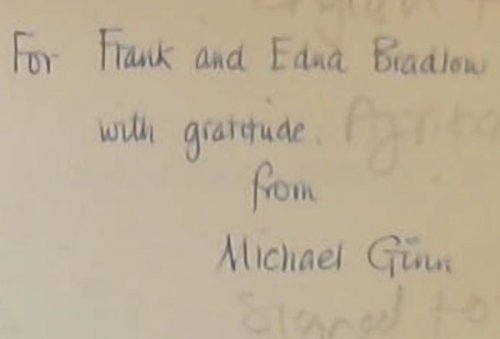 For Frank and Edna Bradlow
with gratitude.
from
Michael Ginn
Signed to